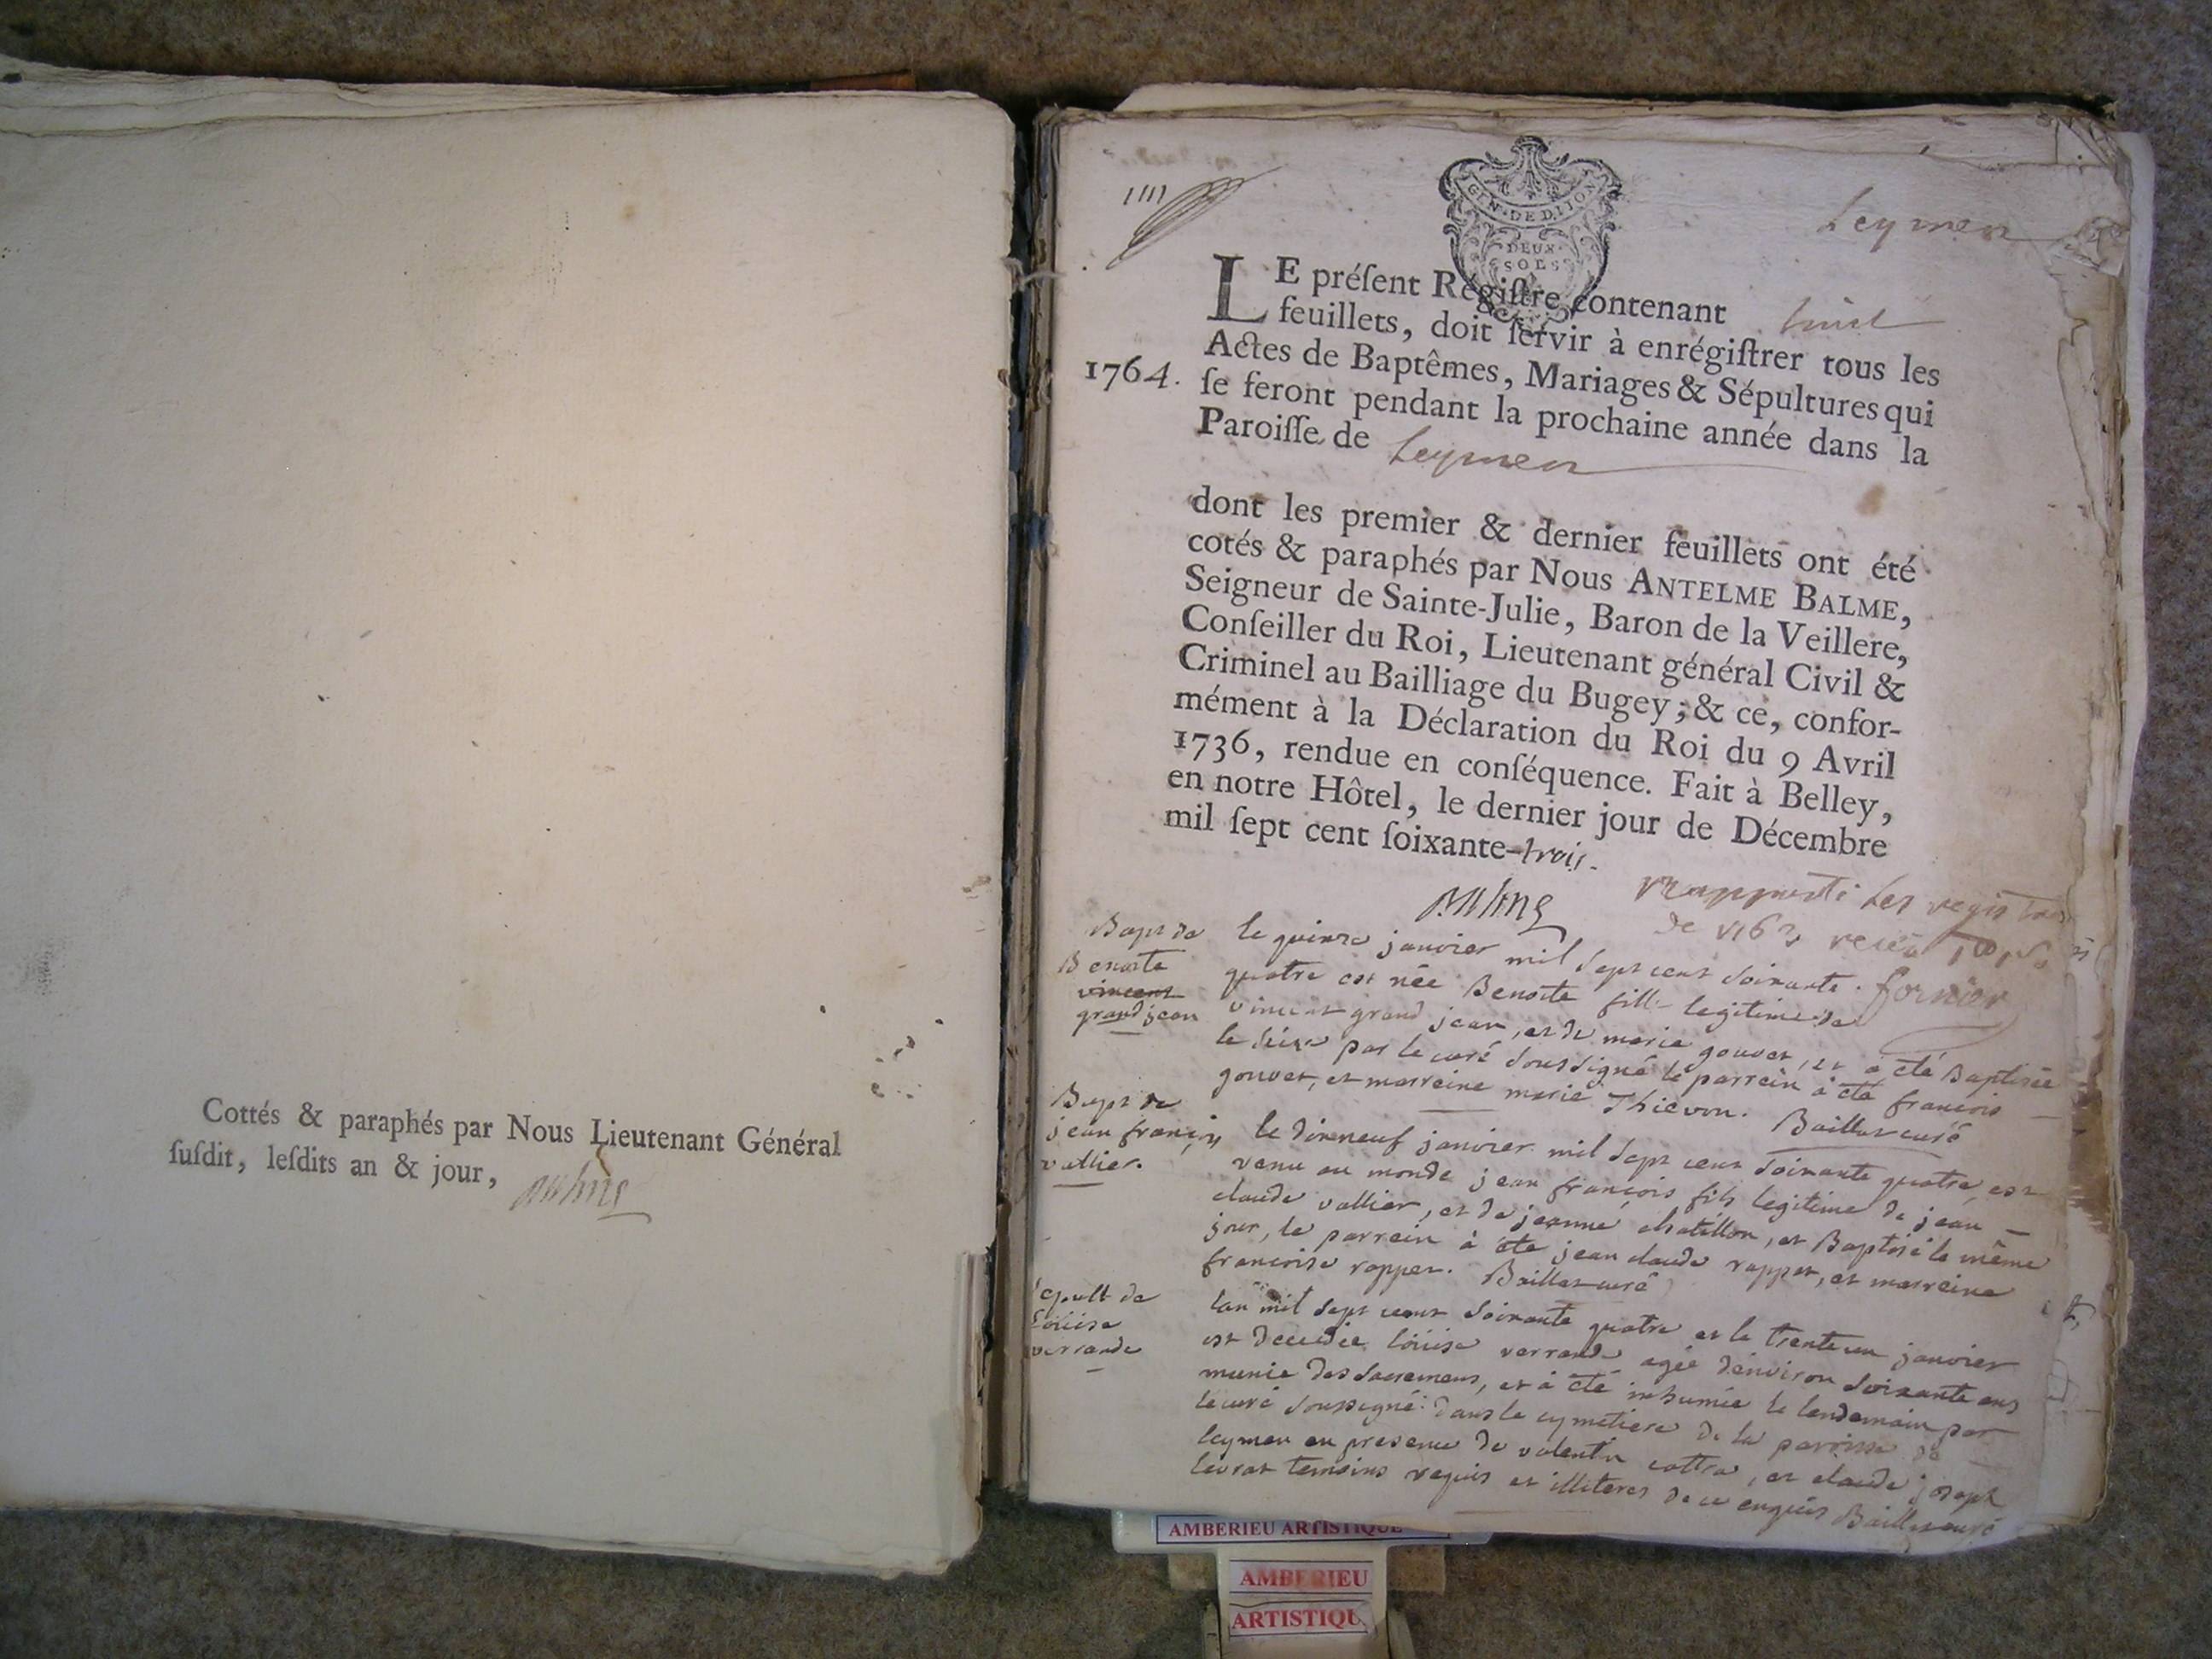 Cottés & paraphés par Nous Lieutenant Général
ſuſdit, leſdits an & jour,
GEN. DE DIJON
DEUX
SOLS
Leymen
LE préſent Régiſtre contenant huit
feuillets, doit ſervir à enrégiſtrer tous les
Actes de Baptêmes, Mariages & Sépultures qui
1764. ſe feront pendant la prochaine année dans la
Paroiſſe de Leymen
dont les premier & dernier feuillets ont été
cotés & paraphés par Nous ANTELME BALME,
Seigneur de Sainte-Julie, Baron de la Veillere,
Conſeiller du Roi, Lieutenant général Civil &
Criminel au Bailliage du Bugey; & ce, confor-
mément à la Déclaration du Roi du 9 Avril
1736, rendue en conſéquence. Fait à Belley,
en notre Hôtel, le dernier jour de Décembre
mil ſept cent ſoixante-trois.
rapporté les registres
de 1763
fornier
Bapt de
Benoite
vincent
grand jean
le quinze janvier mil sept cent soixante
quatre est née Benoite fille legitime de
vincent grand jean, et de marie gouvet, et a été Baptisée
le seize par le curé soussigné le parrein à été francois
gouvet, et marreine marie Thievon. Baillat curé
Bapt de
jean françois
vallier.
le dixneuf janvier mil sept cent soixante quatre est
venu au monde jean françois fils legitime de jean
claude vallier, et de jeanne chatillon, et Baptisé le même
jour, le parrein à été jean claude rappet, et marreine
francoise rappet. Baillat curé
sepult de
Loüise
verrande
lan mil sept cent soixante quatre et le trente un janvier
est decedée loüise verrande agée denviron soixante ans
munie des sacremens, et à été inhumée le lendemain par
le curé soussigné dans le cymetiere de la paroisse de
leymen en presence de valentin cottra, et claude joseph
levrat temoins requis et illiteres de ce enquis Baillat curé
AMBERIEU ARTISTIQUE
AMBERIEU
ARTISTIQU